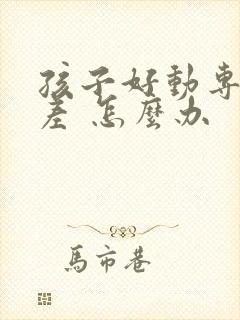 孩子好動專
差 怎麼办
馬市巷